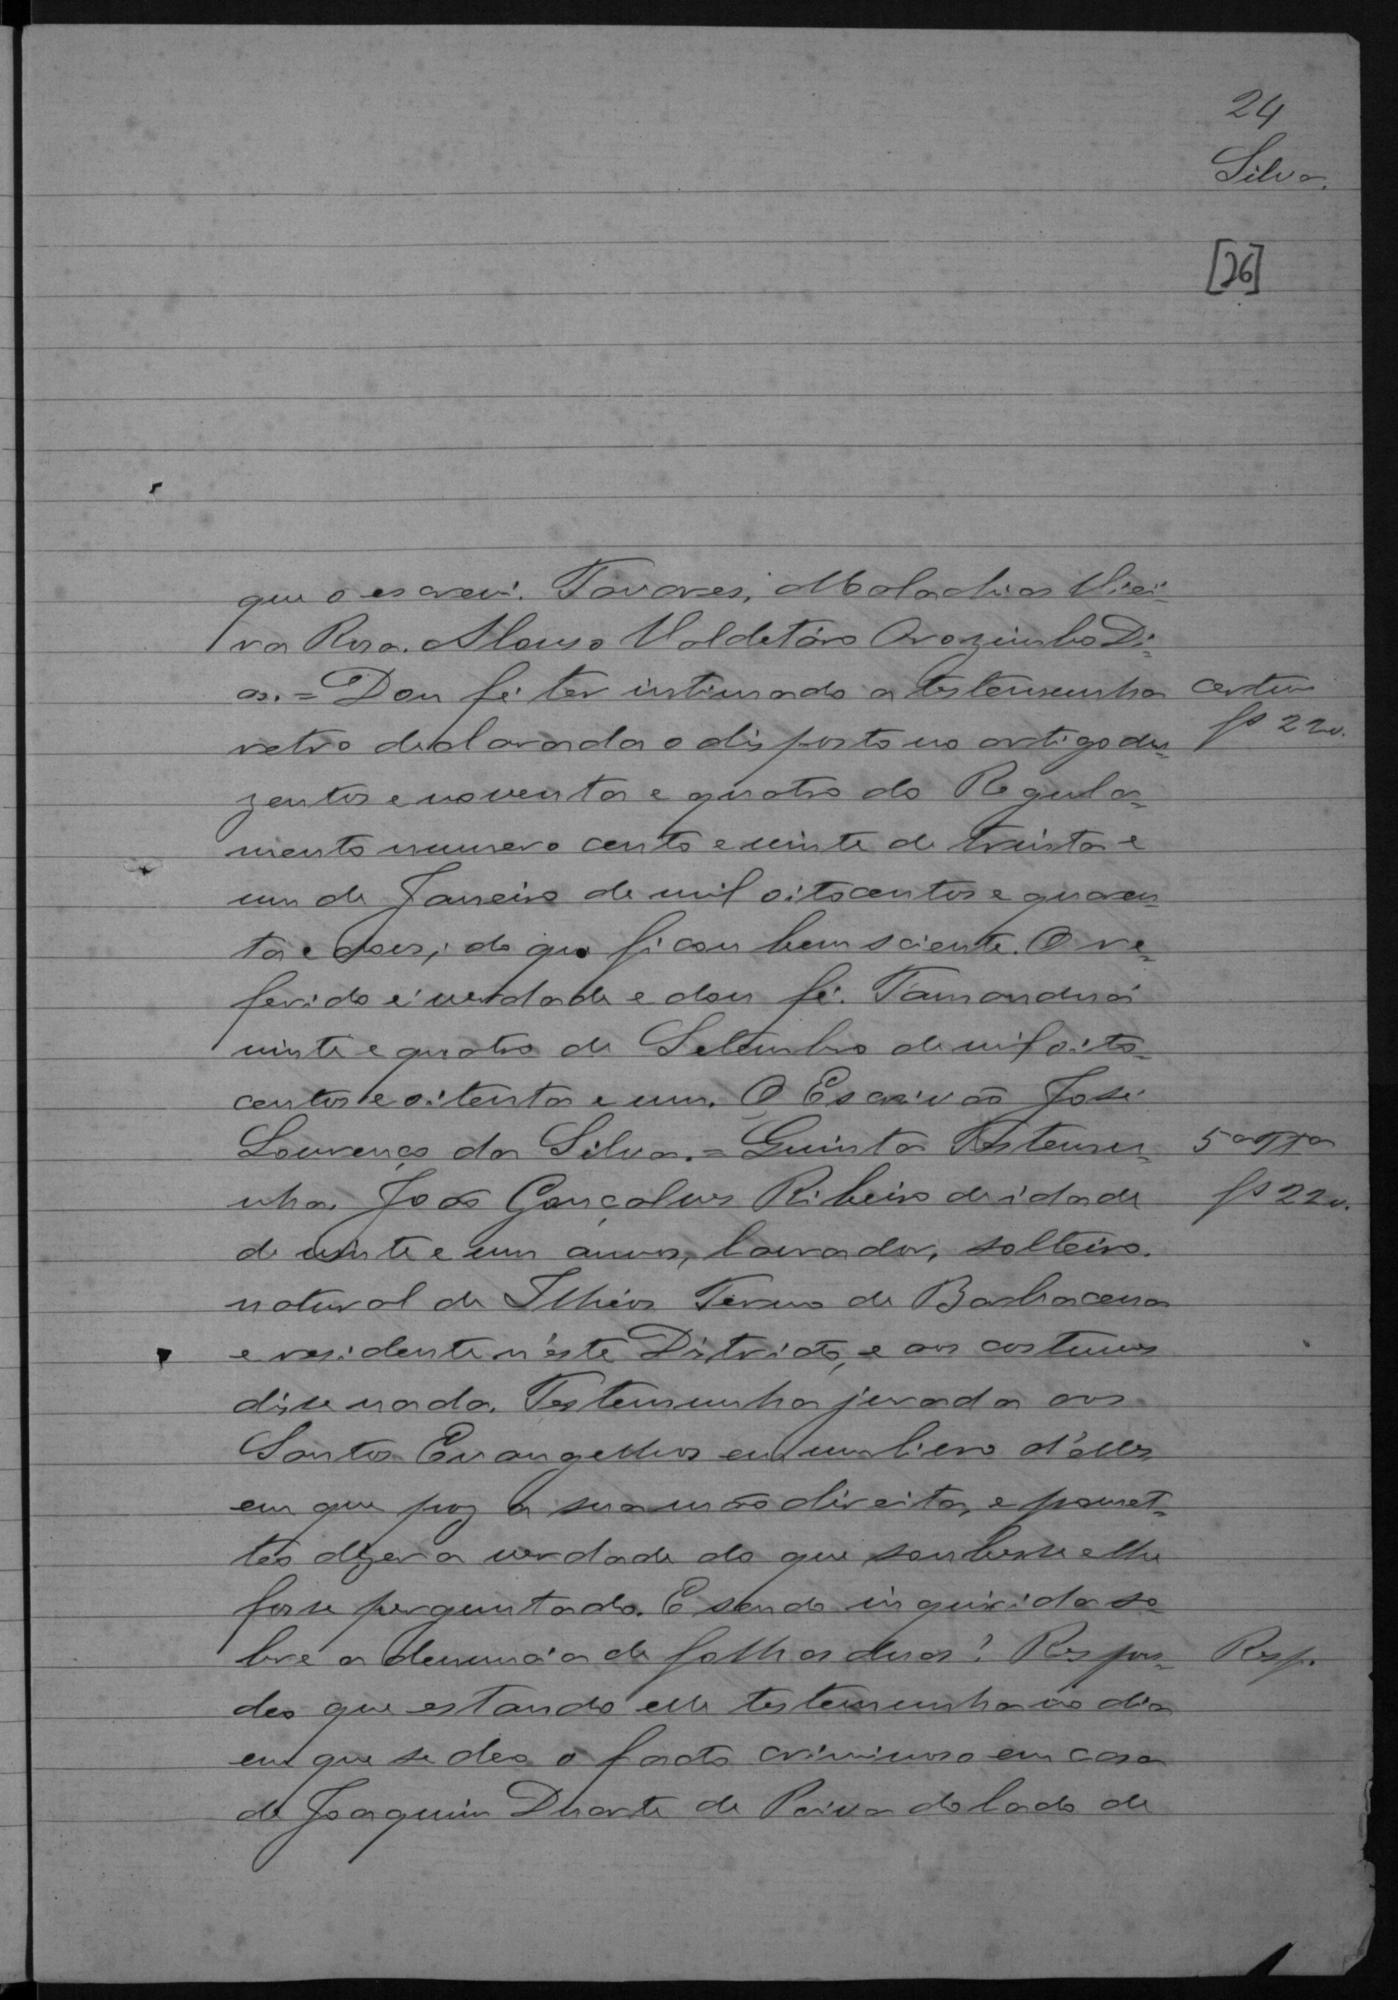 24
Silva.
[26]
que o escrevi. Tavares, Malachias Viei=
ra Rosa. Alonso Valdetáro Orozimbo Di=
as. = Dou fé ter intimado a testemunha
certim
retro declarada o disposto no artigo du=
fs 22v.
zentos e noventa e quatro do Regula=
mento numero cento e vinte de trinta e
um de Janeiro de mil oitocentos e quaren=
ta e dous; do que ficou bem sciente. O re=
ferido é verdade e dou fé. Tamanduá
vinte e quatro de Setembro de mil oito=
centos e oitenta e um. O Escrivão José
Lourenço da Silva. = Quinta Testemu=
5a Ttа
nha. João Gonçalves Ribeiro de idade
fs 22v.
de vinte e um annos, lavrador, solteiro.
natural de Ilhéos Termo de Barbacena
e residente n'este Districto, e aos costumes
disse nada. Testemunha jurada aos
Santos Evangelhos em um livro d'elles
em que poz a sua mão direita, e promet=
teo dizer a verdade do que soubesse e lhe
fosse perguntado. E sendo inquirida so=
bre a denuncia de folhas duas? Respon=
Resp.
deo que estando elle testemunha no dia
em que se deo o facto criminoso em casa
de Joaquim Duarte de Paiva do lado de